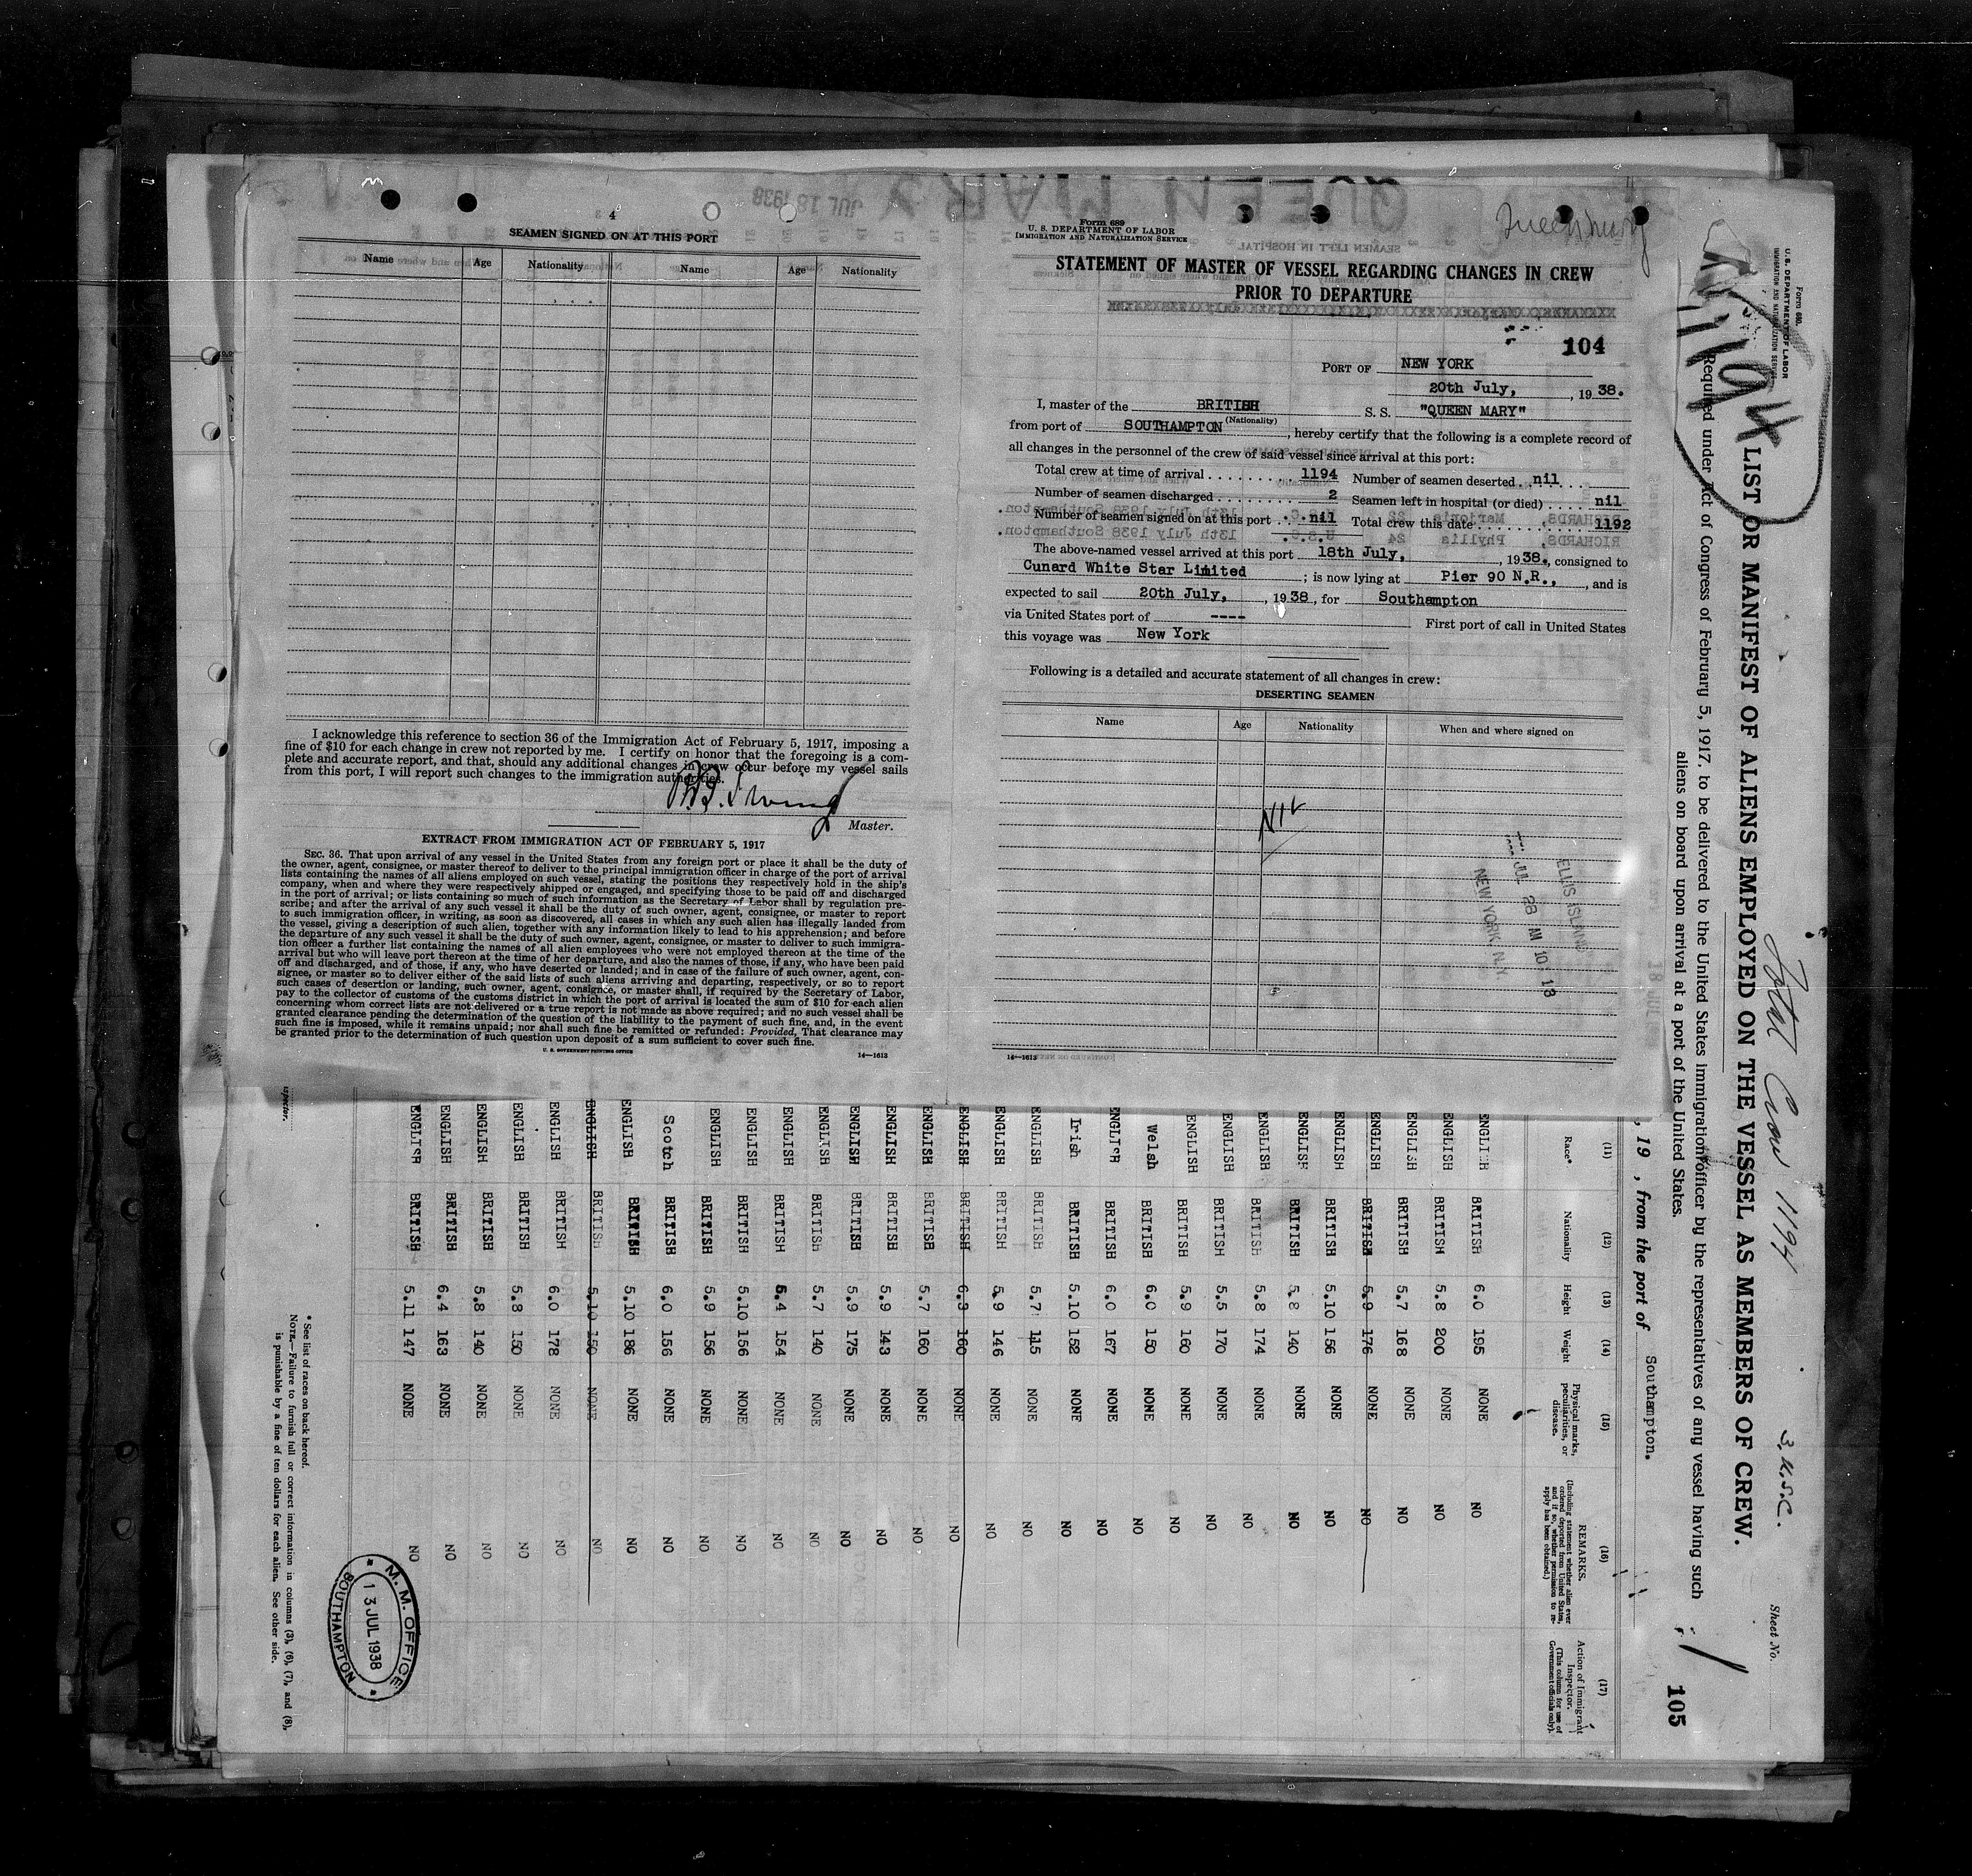 4
SEAMEN SIGNED ON AT THIS PORT
Name Age Nationality Name Age Nationality
I acknowledge this reference to section 36 of the Immigration Act of February 5, 1917, imposing a
fine of $10 for each change in crew not reported by me. I certify on honor that the foregoing is a com-
plete and accurate report, and that, should any additional changes in crew occur before my vessel sails
from this port, I will report such changes to the immigration authorities.
Master.
EXTRACT FROM IMMIGRATION ACT OF FEBRUARY 5, 1917
SEC. 36. That upon arrival of any vessel in the United States from any foreign port or place it shall be the duty of
the owner, agent, consignee, or master thereof to deliver to the principal immigration officer in charge of the port of arrival
lists containing the names of all aliens employed on such vessel, stating the positions they respectively hold in the ship's
company, when and where they were respectively shipped or engaged, and specifying those to be paid off and discharged
in the port of arrival; or lists containing so much of such information as the Secretary of Labor shall by regulation pre-
scribe; and after the arrival of any such vessel it shall be the duty of such owner, agent, consignee, or master to report
to such immigration officer, in writing, as soon as discovered, all cases in which any such alien has illegally landed from
the vessel, giving a description of such alien, together with any information likely to lead to his apprehension; and before
the departure of any such vessel it shall be the duty of such owner, agent, consignee, or master to deliver to such immigra-
tion officer a further list containing the names of all alien employees who were not employed thereon at the time of the
arrival but who will leave port thereon at the time of her departure, and also the names of those, if any, who have been paid
off and discharged, and of those, if any, who have deserted or landed; and in case of the failure of such owner, agent, con-
signee, or master so to deliver either of the said lists of such aliens arriving and departing, respectively, or so to report
such cases of desertion or landing, such owner, agent, consignee, or master shall, if required by the Secretary of Labor,
pay to the collector of customs of the customs district in which the port of arrival is located the sum of $10 for each alien
concerning whom correct lists are not delivered or a true report is not made as above required; and no such vessel shall be
granted clearance pending the determination of the question of the liability to the payment of such fine, and, in the event
such fine is imposed, while it remains unpaid; nor shall such fine be remitted or refunded: Provided, That clearance may
be granted prior to the determination of such question upon deposit of a sum sufficient to cover such fine.
U. S. GOVERNMENT PRINTING OFFICE 14—1613
Form 689
U. S. DEPARTMENT OF LABOR
IMMIGRATION AND NATURALIZATION SERVICE
STATEMENT OF MASTER OF VESSEL REGARDING CHANGES IN CREW
PRIOR TO DEPARTURE
104
PORT OF NEW YORK
20th July, , 1938.
I, master of the BRITISH S. S. "QUEEN MARY"
(Nationality)
from port of SOUTHAMPTON, hereby certify that the following is a complete record of
all changes in the personnel of the crew of said vessel since arrival at this port:
Total crew at time of arrival 1194 Number of seamen deserted nil
Number of seamen discharged 2 Seamen left in hospital (or died) nil
Number of seamen signed on at this port nil Total crew this date 1192
The above-named vessel arrived at this port 18th July, , 1938., consigned to
Cunard White Star Limited ; is now lying at Pier 90 N.R., , and is
expected to sail 20th July, , 1938, for Southampton
via United States port of ---- First port of call in United States
this voyage was New York
Following is a detailed and accurate statement of all changes in crew:
DESERTING SEAMEN
Name Age Nationality When and where signed on
NIL
ELLIS ISLAND
JUL 28 AM 10 13
NEW YORK N.Y.
14—1613
Form 680.
U. S. DEPARTMENT OF LABOR
IMMIGRATION AND NATURALIZATION SERVICE
1194
Total Crew 1194 3 U.S.C.
Sheet No.
LIST OR MANIFEST OF ALIENS EMPLOYED ON THE VESSEL AS MEMBERS OF CREW.
Required under Act of Congress of February 5, 1917, to be delivered to the United States immigration officer by the representatives of any vessel having such
aliens on board upon arrival at a port of the United States.
1
105
, 19 , from the port of Southampton.
(11) (12) (13) (14) (15) (16) (17)
Race* Nationality Height Weight Physical marks, peculiarities, or disease. REMARKS. (Including statement whether alien ever ordered deported from United States, and if so, whether permission to re-apply has been obtained.) Action of Immigrant Inspector. (This column for use of Government officials only).
ENGLISH BRITISH 6.0 195 NONE NO
ENGLISH BRITISH 5.8 200 NONE NO
ENGLISH BRITISH 5.7 168 NONE NO
ENGLISH BRITISH 5.9 176 NONE NO
ENGLISH BRITISH 5.10 156 NONE NO
ENGLISH BRITISH 5.8 140 NONE NO
ENGLISH BRITISH 5.8 174 NONE NO
ENGLISH BRITISH 5.5 170 NONE NO
ENGLISH BRITISH 5.9 160 NONE NO
Welsh BRITISH 6.0 150 NONE NO
ENGLISH BRITISH 6.0 167 NONE NO
Irish BRITISH 5.10 152 NONE NO
ENGLISH BRITISH 5.7 115 NONE NO
ENGLISH BRITISH 5.9 146 NONE NO
ENGLISH BRITISH 6.3 160 NONE NO
ENGLISH BRITISH 5.7 160 NONE NO
ENGLISH BRITISH 5.9 143 NONE NO
ENGLISH BRITISH 5.9 175 NONE NO
ENGLISH BRITISH 5.7 140 NONE NO
ENGLISH BRITISH 5.4 154 NONE NO
ENGLISH BRITISH 5.10 156 NONE NO
ENGLISH BRITISH 5.9 156 NONE NO
Scotch BRITISH 6.0 156 NONE NO
ENGLISH BRITISH 5.10 186 NONE NO
ENGLISH BRITISH 5.10 150 NONE NO
ENGLISH BRITISH 6.0 178 NONE NO
ENGLISH BRITISH 5.8 150 NONE NO
ENGLISH BRITISH 5.8 140 NONE NO
ENGLISH BRITISH 6.4 163 NONE NO
ENGLISH BRITISH 5.11 147 NONE NO
* See list of races on back hereof.
NOTE.—Failure to furnish full or correct information in columns (3), (6), (7), and (8),
is punishable by a fine of ten dollars for each alien. See other side.
M. M. OFFICE
13 JUL 1938
SOUTHAMPTON